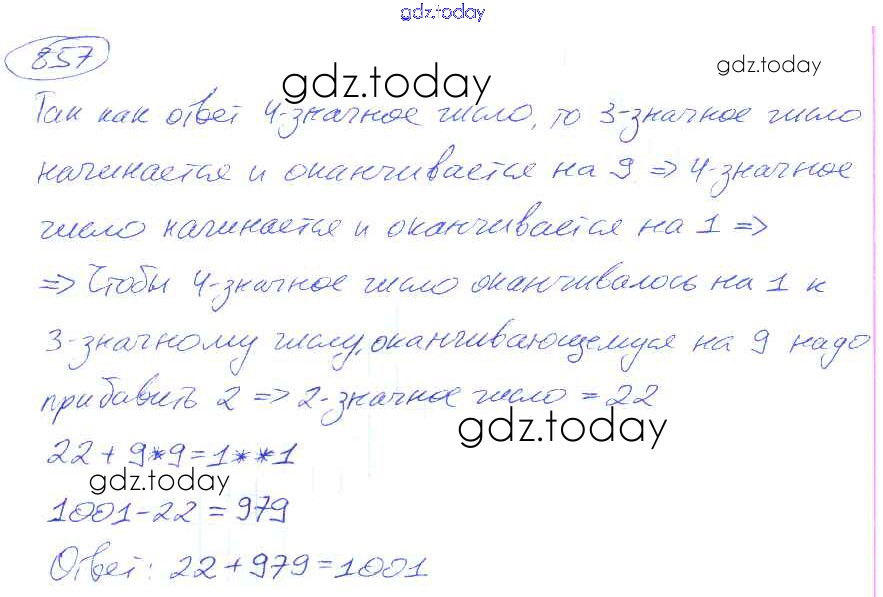 gdz.today
857
gdz.today
gdz.today
Так как ответ 4-значное число, то 3-значное число
начинается и оканчивается на 9 => 4-значное
число начинается и оканчивается на 1 =>
=> Чтобы 4-значное число оканчивалось на 1 к
3-значному числу, оканчивающемуся на 9 надо
прибавить 2 => 2-значное число = 22
gdz.today
22 + 9*9 = 1**1
gdz.today
1001 - 22 = 979
Ответ: 22 + 979 = 1001